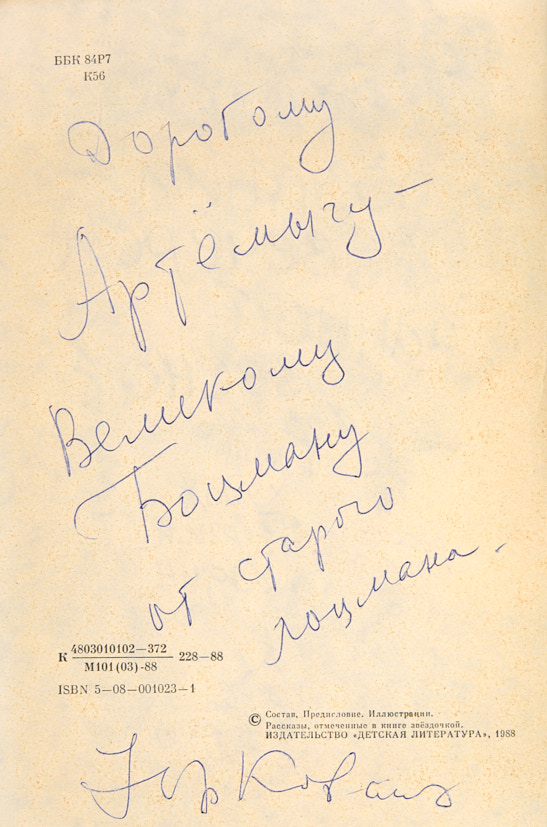 ББК 84Р7
К56
Дорогому
Артёмычу —
Великому
Боцману
от старого
лоцмана.
К 4803010102—372
М101(03)-88 228—88
ISBN 5—08—001023—1
© Состав, Предисловие. Иллюстрации.
Рассказы, отмеченные в книге звёздочкой.
ИЗДАТЕЛЬСТВО «ДЕТСКАЯ ЛИТЕРАТУРА», 1988
Юр Коваль